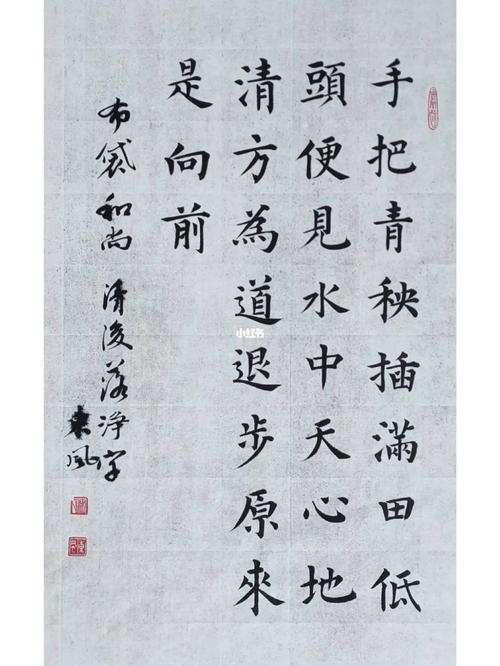 手把青秧插滿田低
頭便見水中天心地
清方為道退步原來
是向前
布袋和尚 清後落淨字
東風
小红书